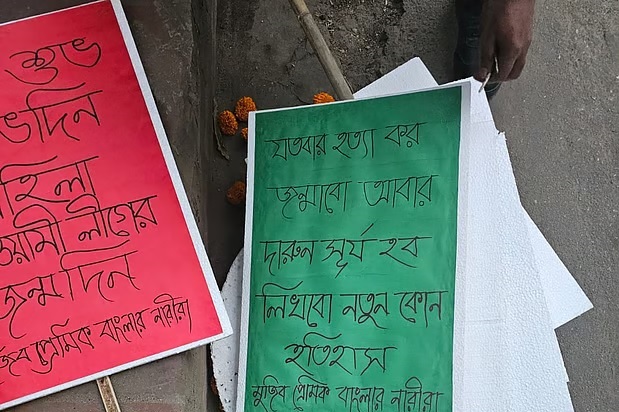 শুভ
ভদিন
হিলা
ওয়ামী লীগের
জন্ম দিন
জিব প্রেমিক বাংলার নারীরা
যতবার হত্যা কর
জন্মাবো আবার
দারুন সূর্য হব
লিখবো নতুন কোন
ইতিহাস
মুজিব প্রেমিক বাংলার নারীরা